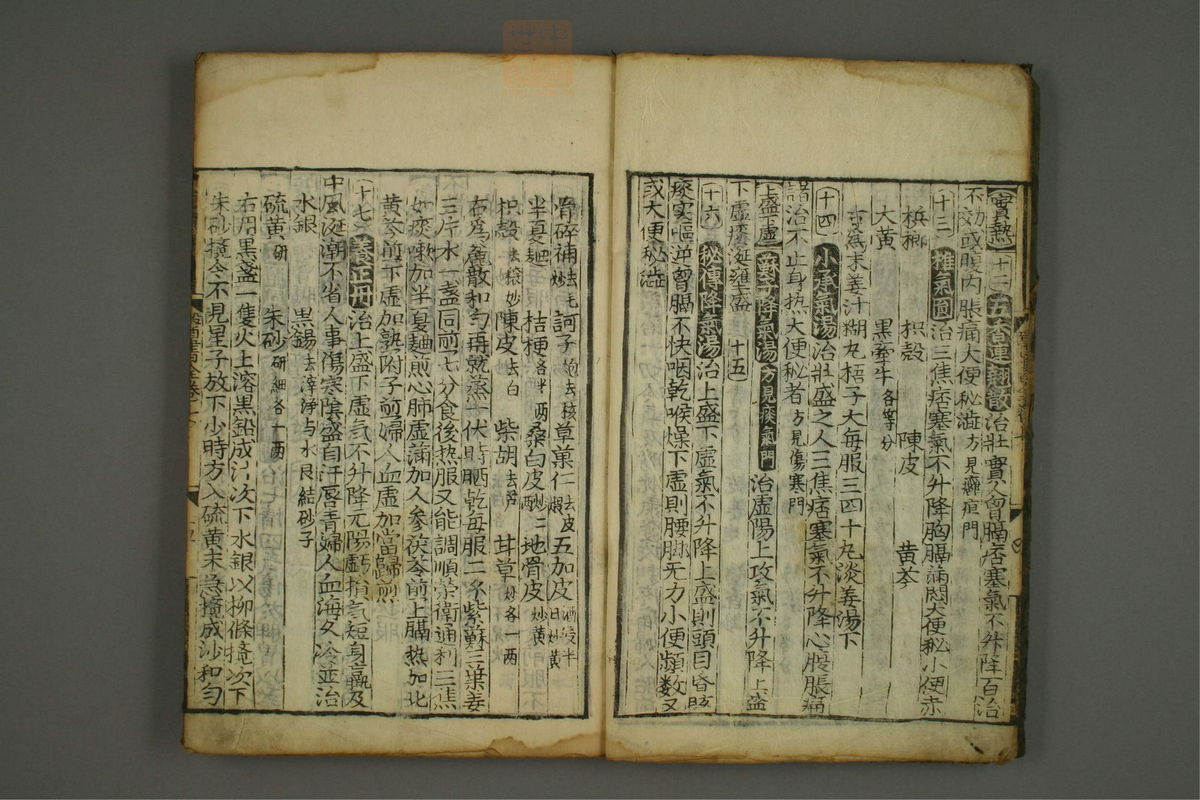 實熱 十二 五香連翹散 治壯實人胷膈痞塞氣不升降百治
不効或腹內脹痛大便秘澁方見癰疽門
十三 推氣圓 治三焦痞塞氣不升降胸膈滿悶大便秘小便赤
檳榔 枳殻 陳皮 黄芩
大黄 黒牽牛各等分
右爲末姜汁糊丸梧子大每服三四十丸淡姜湯下
十四 小承氣湯 治壯盛之人三焦痞塞氣不升降心腹脹痛
諸治不止身热大便秘者方見傷寒門
上盛下虛 蘇子降氣湯方見痰氣門 治虛陽上攻氣不升降上盛
下虛痰涎壅盛 十五
十六 秘傳降氣湯 治上盛下虛氣不升降上盛則頭目昏眩
痰実嘔逆胷膈不快咽乾喉燥下虛則腰脚无力小便頻数又
或大便秘澁
骨碎補去毛炒 訶子炮去核 草菓仁去皮煨 五加皮酒浸半日炒黄
半夏麯 桔梗各半两 桑白皮炒二两 地骨皮炒黄
枳殻去穣炒 陳皮去白 柴胡去芦 甘草炒各一两
右爲麄散和勻再就蒸一伏時晒乾每服二錢紫蘇三葉姜
三片水一盞同煎七分食後热服又能調順荣衛通利三焦
如痰嗽加半夏麯煎心肺虛滿加人參茯苓煎上膈热加北
黄芩煎下虛加熟附子煎婦人血虛加當歸煎
十七 養正丹 治上盛下虛气不升降元陽虧損气短身羸及
中風涎潮不省人事傷寒陰盛自汗唇青婦人血海久冷並治
水銀 黒錫去滓淨与水艮結砂子
硫黄研 朱砂研細各一两
右用黒盞一隻火上溶黒鉛成汁次下水銀以柳條攪次下
朱砂攪令不見星子放下少時方入硫黄末急攪成沙和勻